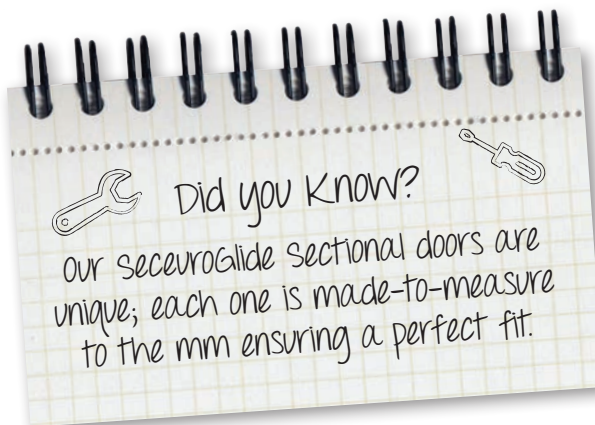 Did you Know?
Our SeceuroGlide Sectional doors are
unique; each one is made-to-measure
to the mm ensuring a perfect fit.